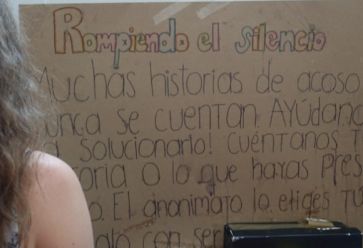 Rompiendo el silencio
Muchas historias de acoso
nunca se cuentan Ayúdano
a solucionarlo! Cuéntanos T
oria o lo que hayas pres
o. El anonimato lo eliges TÚ
con ser